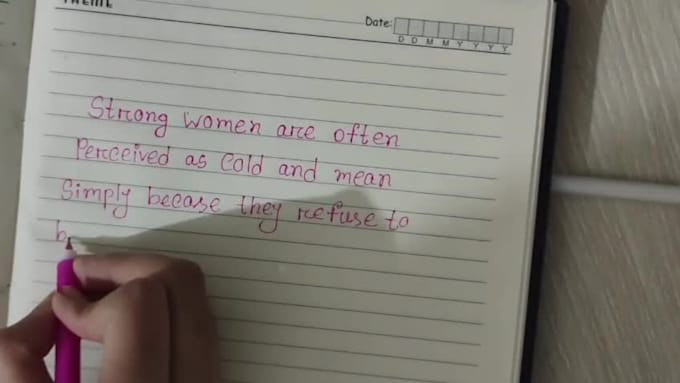 THEME
Date:
D D M M Y Y Y Y
Strong women are often
Perceived as Cold and mean
Simply becase they refuse to
b